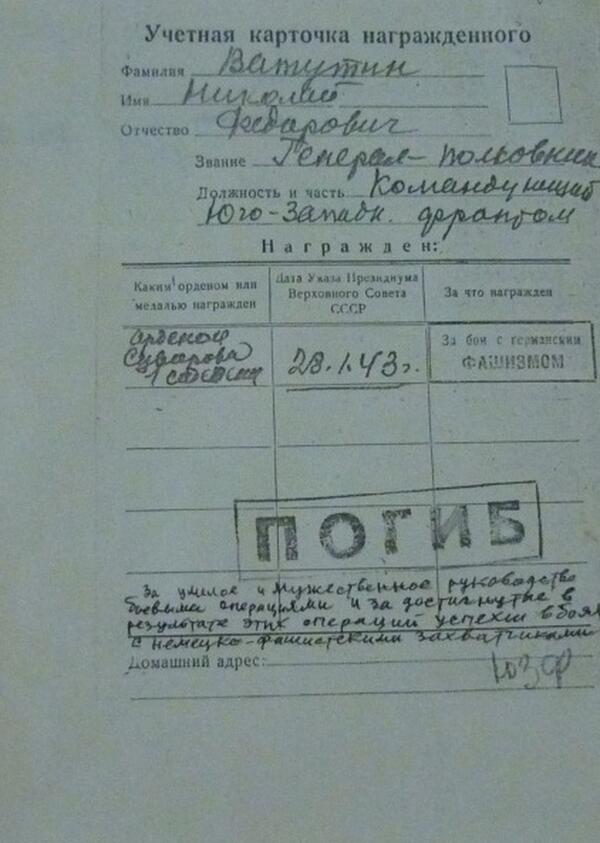 Учетная карточка награжденного
Фамилия Ватутин
Имя Николай
Отчество Федорович
Звание Генерал-полковник
Должность и часть Командующий
Юго-Западн. фронтом
Награжден:
Каким орденом или медалью награжден
Дата Указа Президиума Верховного Совета СССР
За что награжден
орденом
Суворова
1 степени
28.1.43 г.
За бои с германским
ФАШИЗМОМ
ПОГИБ
За умелое и мужественное руководство
боевыми операциями и за достигнутые в
результате этих операций успехи в боях
с немецко-фашистскими захватчиками
Домашний адрес:
ЮЗФ